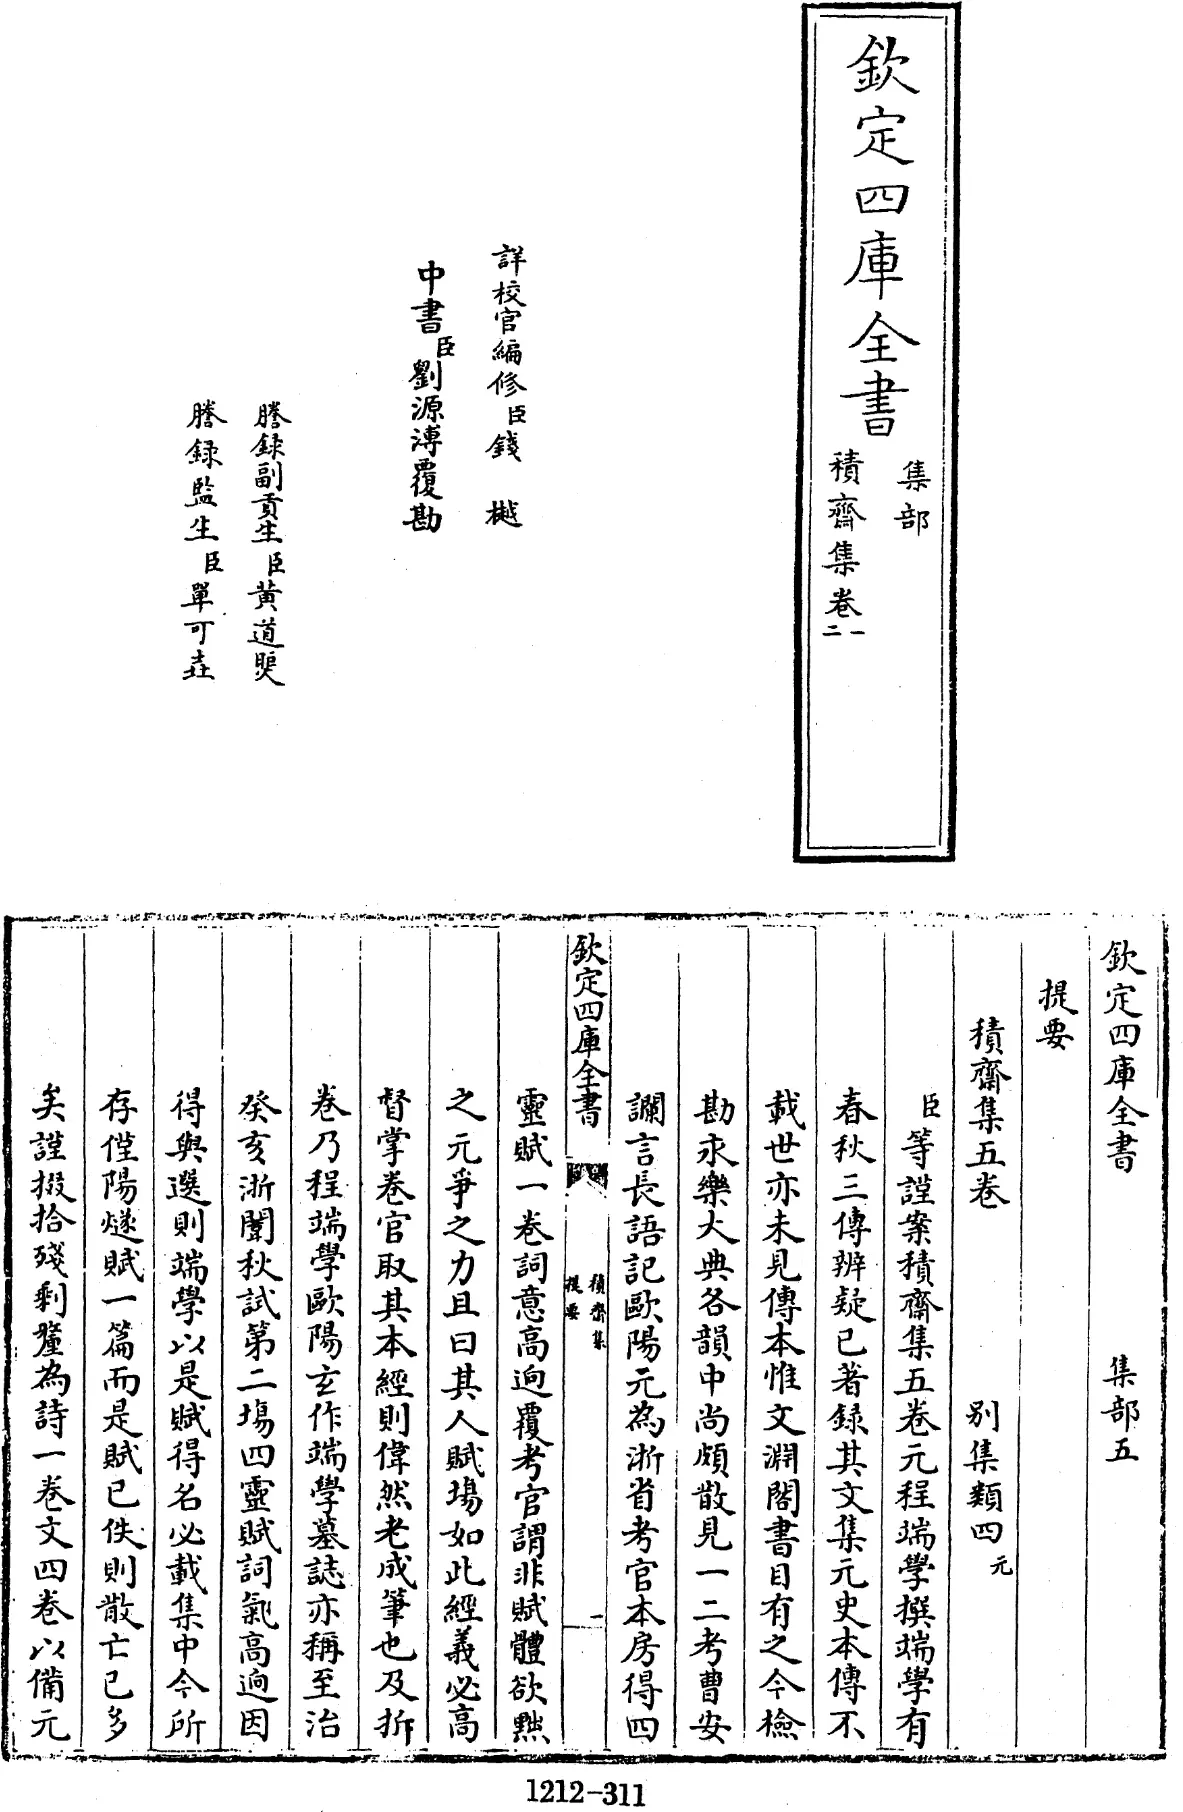 欽定四庫全書
集部
積齋集卷一
二
詳校官編修臣錢樾
中書臣劉源溥覆勘
謄錄副貢生臣黃道煚
謄錄監生臣單可垚
欽定四庫全書
集部五
提要
積齋集五卷
別集類四元
臣等謹案積齋集五卷元程端學撰端學有
春秋三傳辨疑已著錄其文集元史本傳不
載世亦未見傳本惟文淵閣書目有之今檢
勘永樂大典各韻中尚頗散見一二考曹安
讕言長語記歐陽元為浙省考官本房得四
欽定四庫全書
積齋集
提要
一
靈賦一卷詞意高逈覆考官謂非賦體欲黜
之元爭之力且曰其人賦場如此經義必高
督掌卷官取其本經則偉然老成筆也及拆
卷乃程端學歐陽玄作端學墓誌亦稱至治
癸亥浙闈秋試第二場四靈賦詞氣高逈因
得與選則端學以是賦得名必載集中今所
存僅陽燧賦一篇而是賦已佚則散亡已多
矣謹掇拾殘剩釐為詩一卷文四卷以備元
1212-311